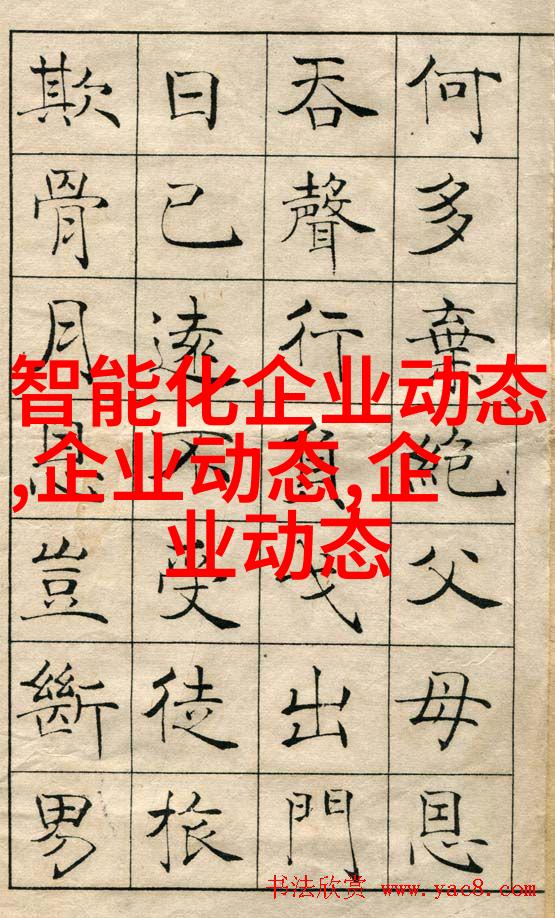 何多棄絕父母恩
吞聲行負戈出門
日已遠不受徒旅
欺骨月恩豈斷男
智能化企业动态
,企业动态,企
业动态
书法欣赏 www.yac8.com